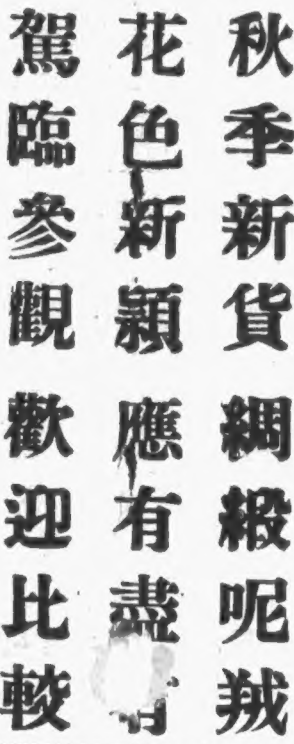 秋季新貨綢緞呢羢
花色新穎應有盡有
駕臨參觀歡迎比較